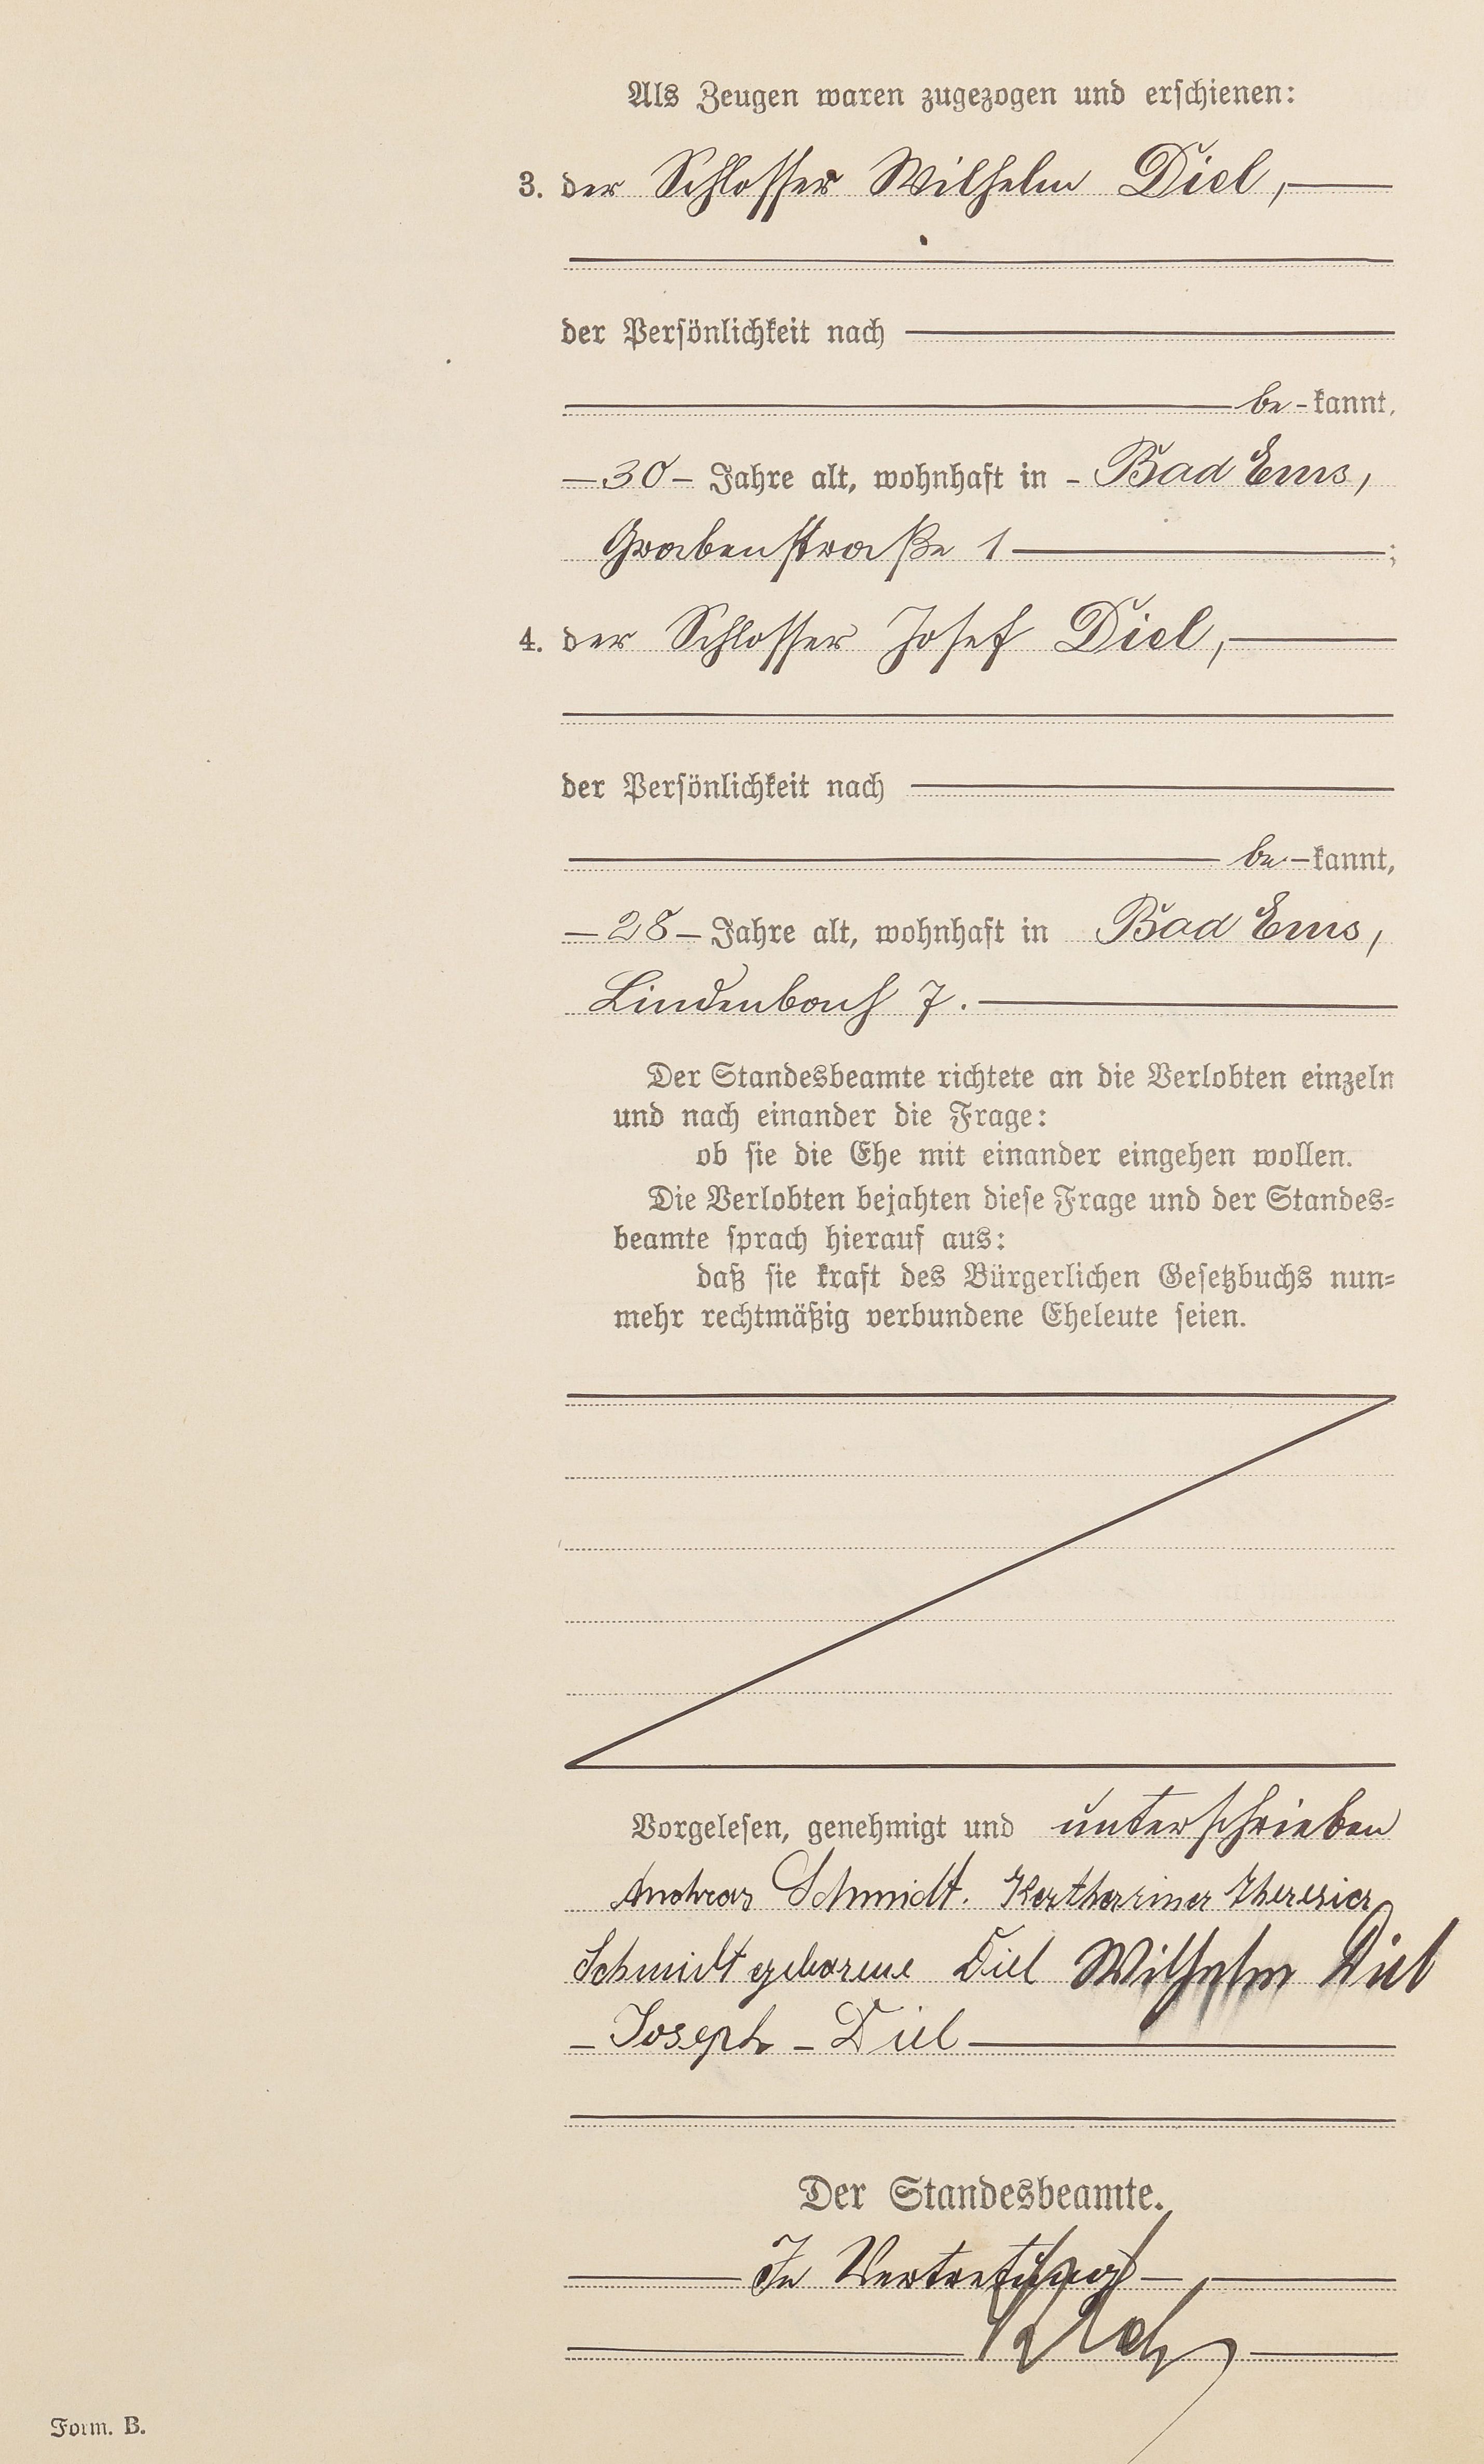 Als Zeugen waren zugezogen und erschienen:
3. der Schlosser Wilhelm Diel,
der Persönlichkeit nach
be-kannt,
-30- Jahre alt, wohnhaft in - Bad Ems,
Grabenstraße 1 ;
4. der Schlosser Josef Diel,
der Persönlichkeit nach
be-kannt,
-28- Jahre alt, wohnhaft in Bad Ems,
Lindenbach 7.
Der Standesbeamte richtete an die Verlobten einzeln
und nach einander die Frage:
ob sie die Ehe mit einander eingehen wollen.
Die Verlobten bejahten diese Frage und der Standes-
beamte sprach hierauf aus:
daß sie kraft des Bürgerlichen Gesetzbuchs nun-
mehr rechtmäßig verbundene Eheleute seien.
Vorgelesen, genehmigt und unterschrieben
Andreas Schmidt. Katharina Theresia
Schmidt geborene Diel Wilhelm Diel
- Joseph - Diel
Der Standesbeamte.
In Vertretung
Form. B.